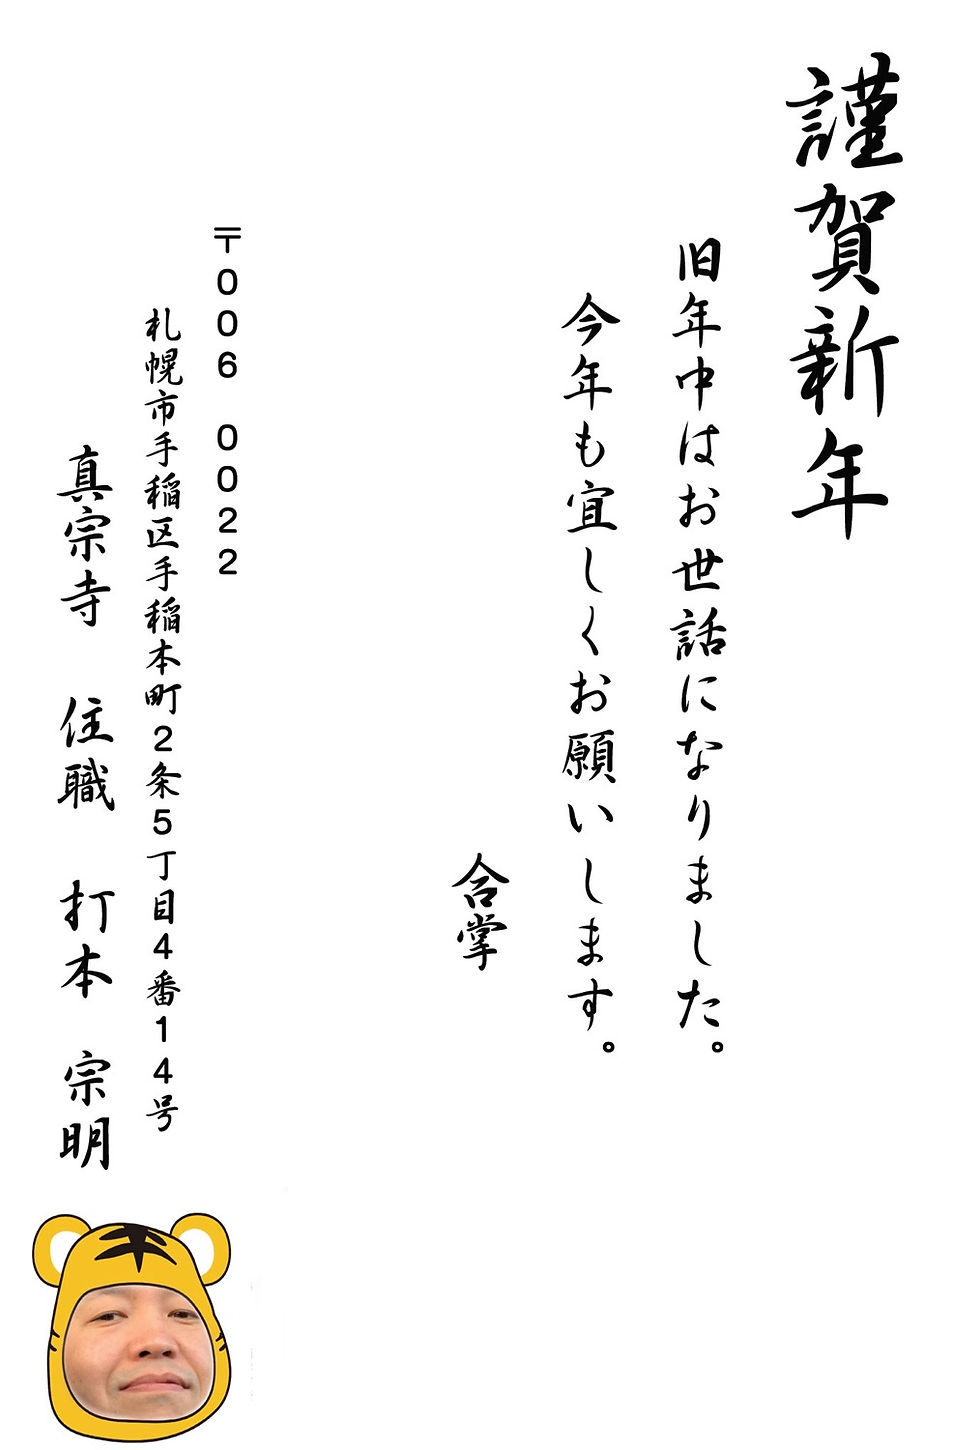 謹賀新年
旧年中はお世話になりました。
今年も宜しくお願いします。
合掌
〒006 0022
札幌市手稲区手稲本町2条5丁目4番14号
真宗寺 住職 打本 宗明